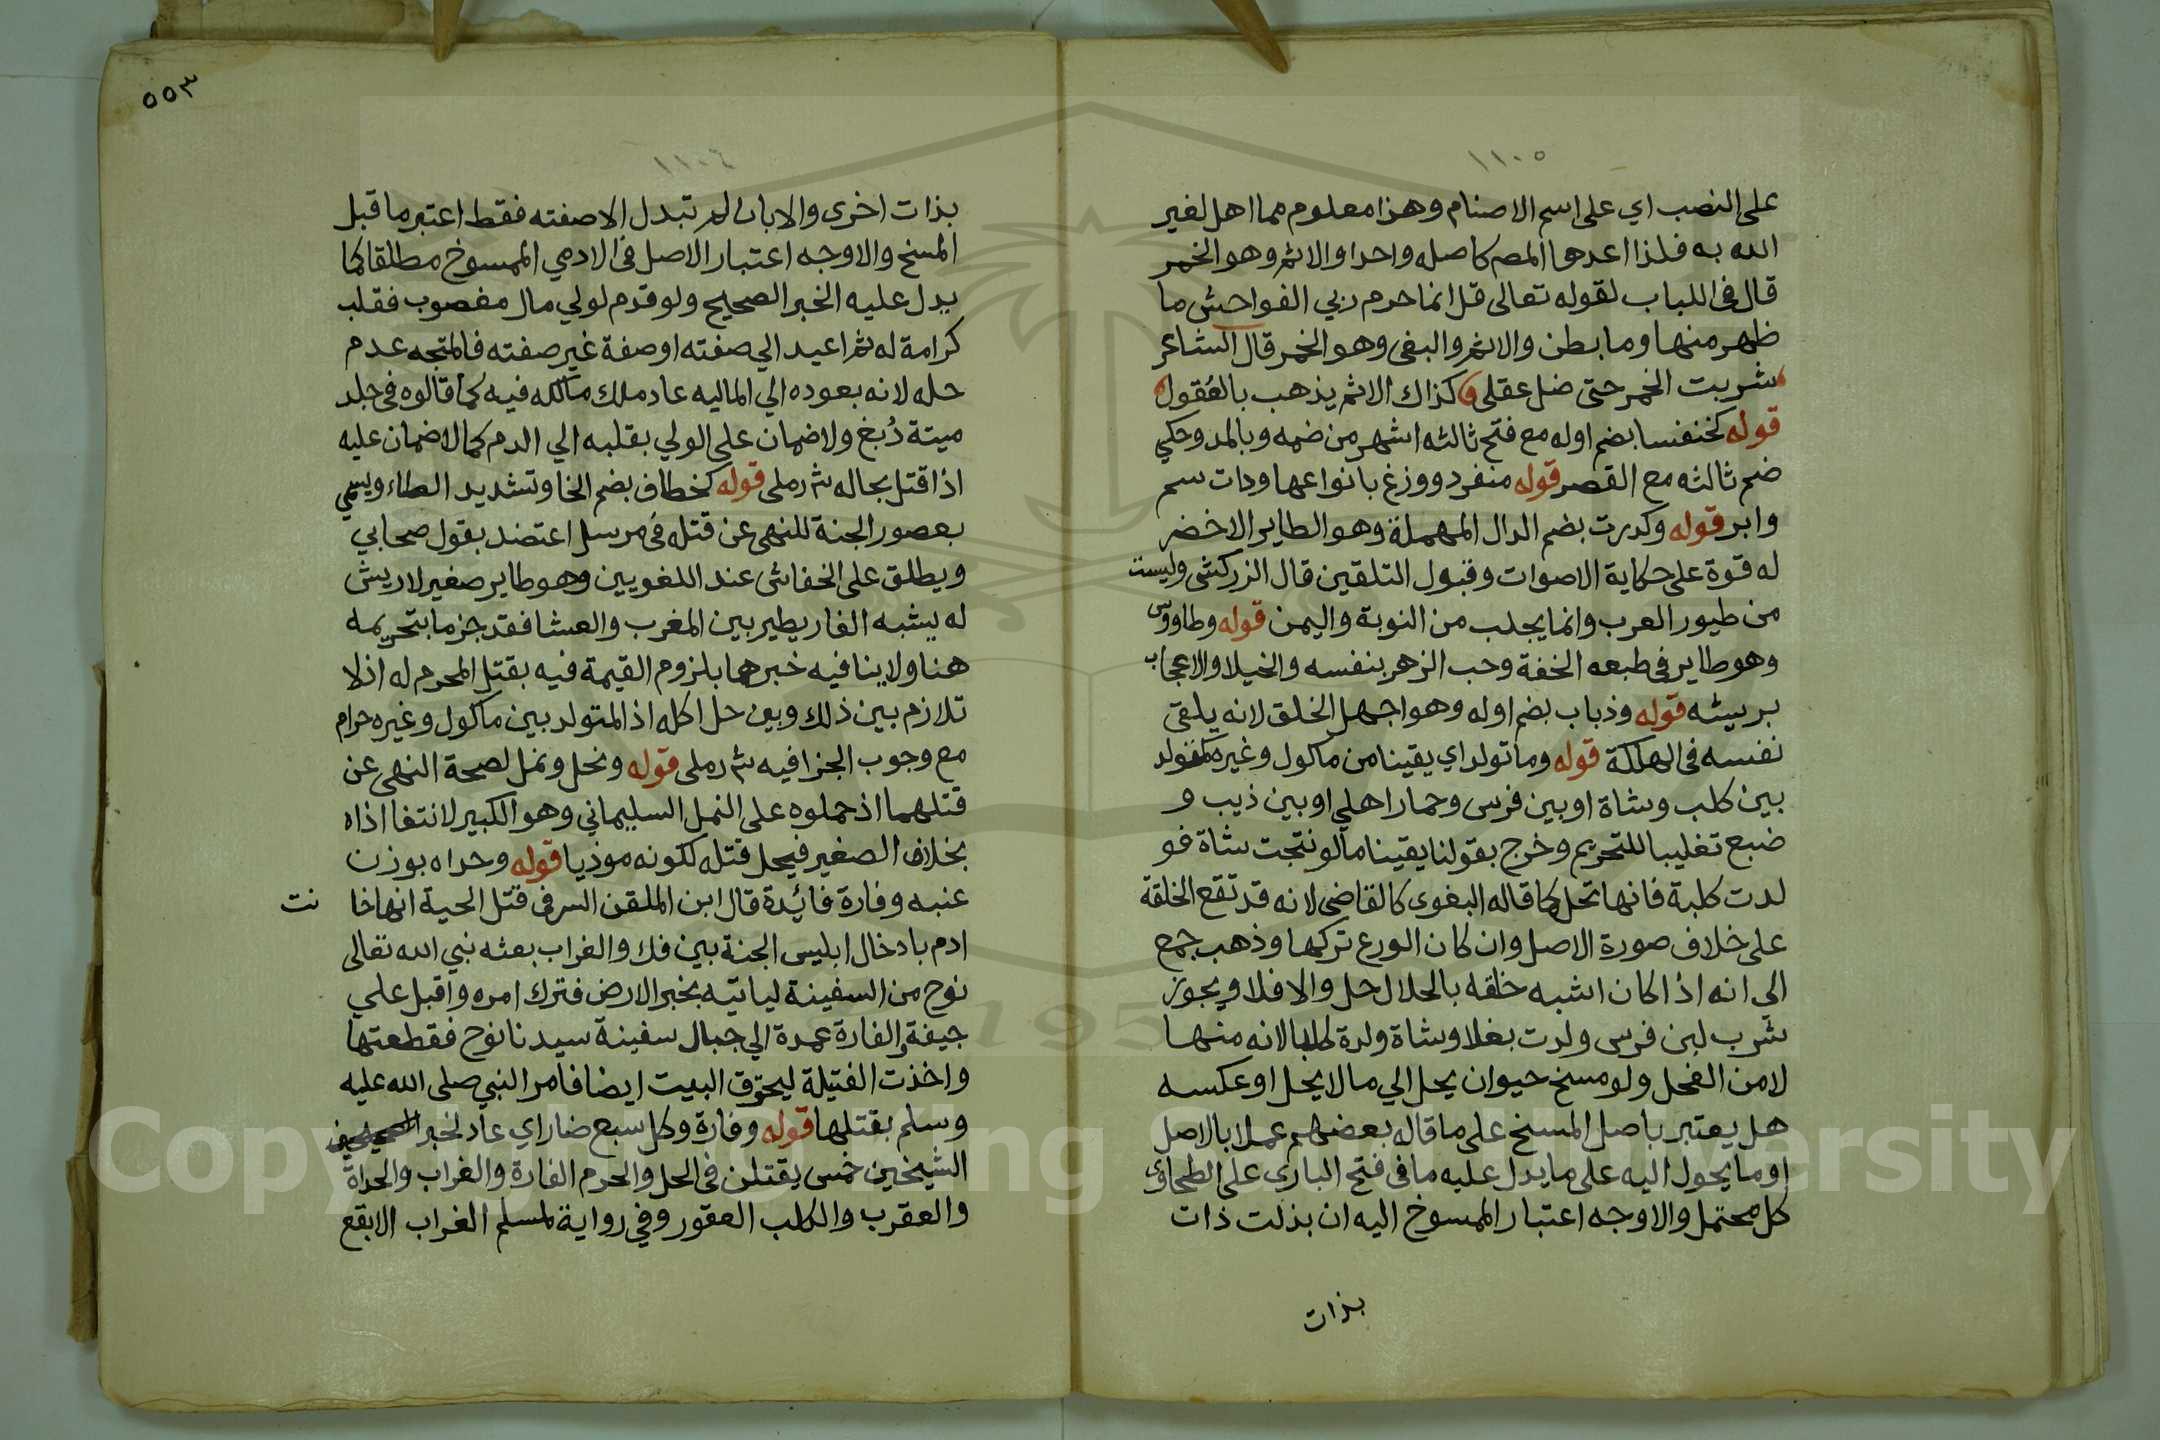 ١١٠٥
على النصب اي على اسم الاصنام وهذا معلوم مما اهل لغير
الله به فلذا اعدهما المص كاصله واحدا والاثم وهو الخمر
قال في اللباب لقوله تعالى قل انما حرم ربي الفواحش ما
ظهر منها وما بطن والاثم والبغى وهو الخمر قال الشاعر
شربت الخمر حتى ضل عقلي كذاك الاثم يذهب بالعُقول
قوله كخنفسا بضم اوله مع فتح ثالثه اشهر من ضمه وبالمد وحكي
ضم ثالثه مع القصر قوله منفرد ووزغ بانواعها وذات سم
وابر قوله وكدرت بضم الدال المهملة وهو الطاير الاخضر
له قوة على حكاية الاصوات وقبول التلقين قال الزركشى وليست
من طيور العرب وانما يجلب من النوبة واليمن قوله وطاووس
وهو طاير في طبعه الخفة وحب الزهر بنفسه والخيلا والاعجاب
بريشه قوله وذباب بضم اوله وهو اجهل الخلق لانه يلقى
نفسه في الهلكة قوله وما تولد اي يقينا من ماكول وغيره كمتولد
بين كلب وشاة او بين فرس وحمار اهلي او بين ذيب و
ضبع تغليبا للتحريم وخرج بقولنا يقينا ما لو نتجت شاة فو
لدت كلبة فانها تحل كما قاله البغوى كالقاضى لانه قد تقع الخلقة
على خلاف صورة الاصل وان كان الورع تركها وذهب جمع
الي انه اذا كان اشبه خلقه بالحلال حل والا فلا ويجوز
شرب لبن فرس ولدت بغلا وشاة ولدة كلبا لانه منها
لا من الفحل ولو مسخ حيوان يحل الي ما لا يحل او عكسه
هل يعتبر باصل المسخ على ما قاله بعضهم عملا بالاصل
او ما يحول اليه على ما يدل عليه ما في فتح البارى على الطحاوى
كل محتمل والاوجه اعتبار الممسوخ اليه ان بذلت ذات
بذات
٥٥٣
١١٠٤
بذات اخرى والا بان لم تبدل الا صفته فقط اعتبر ما قبل
المسخ والاوجه اعتبار الاصل في الادمي الممسوخ مطلقا كما
يدل عليه الخبر الصحيح ولو قدم لولي مال مغصوب فقلب
كرامة له ثم اعيد الي صفته او صفة غير صفته فالمتجه عدم
حله لانه بعوده الي الماليه عاد ملك مالكه فيه كما قالوه في جلد
ميتة دُبغ ولا ضمان على الولي بقلبه الي الدم كما لا ضمان عليه
اذا قتل بحاله ش رملى قوله كخطاف بضم الخا وتشديد الطاء ويسمي
بعصور الجنة للنهى عن قتله في مرسل اعتضد بقول صحابي
ويطلق على الخفاش عند اللغويين وهو طاير صغير لا ريش
له يشبه الفار يطير بين المغرب والعشا فقد جزما بتحريمه
هنا ولا ينافيه خبرهما بلزوم القيمة فيه بقتل المحرم له اذ لا
تلازم بين ذلك وبين حل اكله اذ المتولد بين ماكول وغيره حرام
مع وجوب الجزا فيه ش رملى قوله ونحل ونمل لصحة النهى عن
قتلهما اذ حملوه على النمل السليماني وهو الكبير لانتفا اذاه
بخلاف الصغير فيحل قتله لكونه موذيا قوله وحداه بوزن
عنبه وفارة فائدة قال ابن الملقن السر في قتل الحية انها خا نت
ادم بادخال ابليس الجنة بين فك والغراب بعثه نبي الله تعالى
نوح من السفينة لياتيه بخبر الارض فترك امره واقبل على
جيفة والفارة عمدة الي جبال سفينة سيدنا نوح فقطعتها
واخذت الفتيلة ليحترق البيت ايضا فامر النبي صلى الله عليه
وسلم بقتلها قوله وفارة وكل سبع ضار اي عاد لخبر
الشيخين خمس يقتلن في الحل والحرم الفارة والغراب والحداة
والعقرب والكلب العقور وفي رواية لمسلم الغراب الابقع
Copyright © King Saud University
195